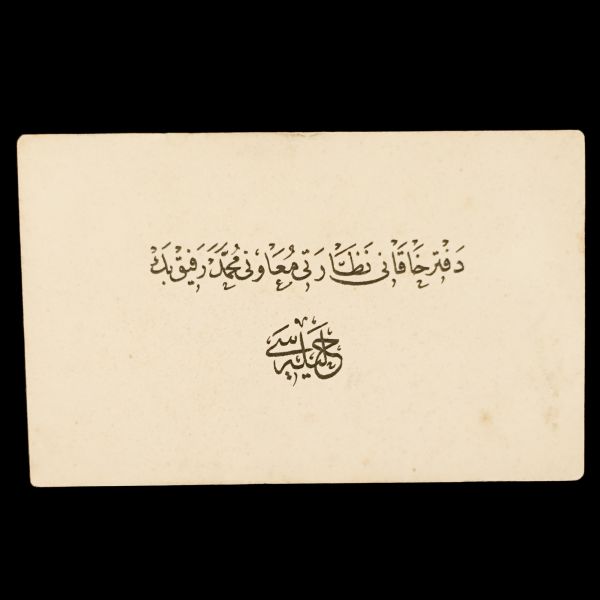 دفتر خاقانی نظارتی معاونی محمد رفیق بك
حلیله‌سی